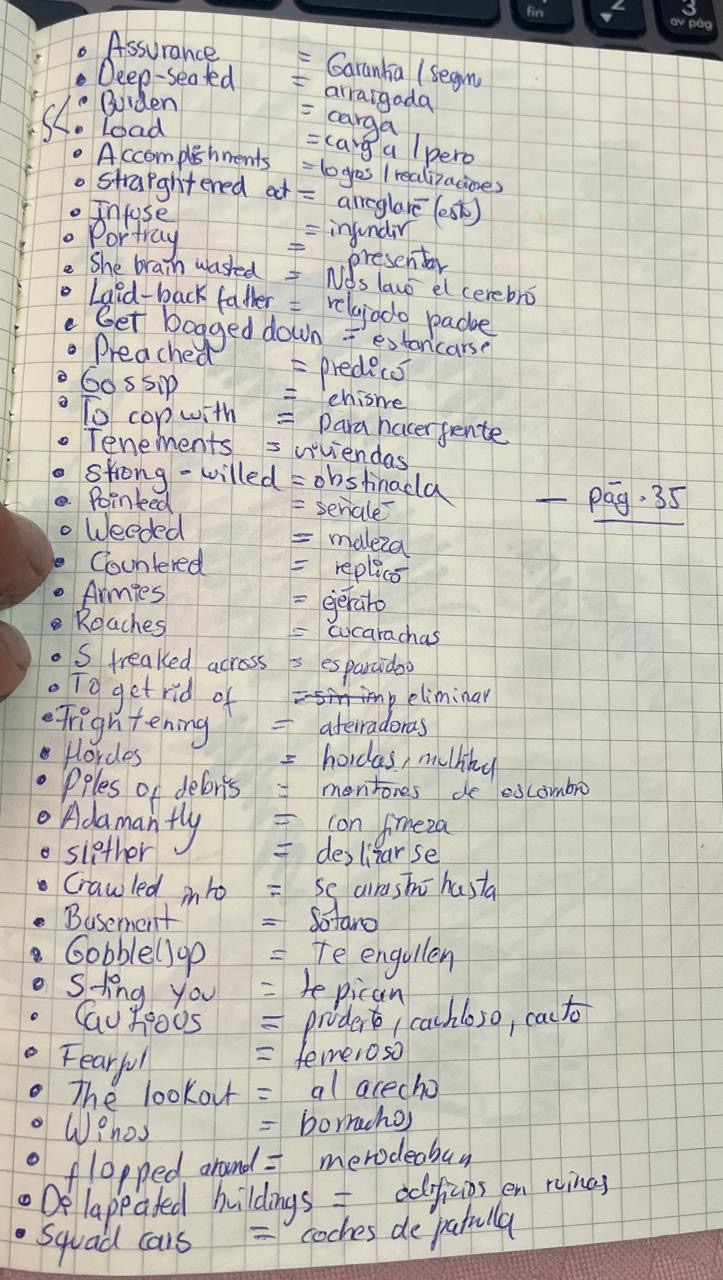 fin
3
av pág
• Assurance = Garantia / segu
• Deep-seated = arraigada
• Burden = carga
• Load = carga / pero
• Accomplishments = logos / realizaciones
• Straightened out = arreglaré (esto)
• Infuse = infundir
• Portray = presentar
• She brain wasted = Nos lavó el cerebró
• Laid-back father = relajado padre
• Get bogged down = estancarse
• Preached = predicó
• Gossip = chisme
• To cop with = para hacer frente
• Tenements = viviendas
• Strong-willed = obstinada
— pág. 35
• Pointeed = señaló
• Weeded = maleza
• Countered = replicó
• Armies = ejército
• Roaches = cucarachas
• Streaked across = esparcidoo
• To get rid of = eliminar
• Frightening = aterradoras
• Hordes = hordas,
• Piles of debris = montones de escombro
• Adamantly = con fimeza
• slither = deslizarse
• Crawled into = se arrastró hasta
• Basement = Sótano
• Gobble()up = Te engullen
• Sting you = te pican
• Cautioos =
• Fearful = temeroso
• The lookout = al acecho
• Winos = borrachos
• flopped around = merodeaban
• Delapeated buildings = edificios en ruinas
• Squad cars = coches de patrulla